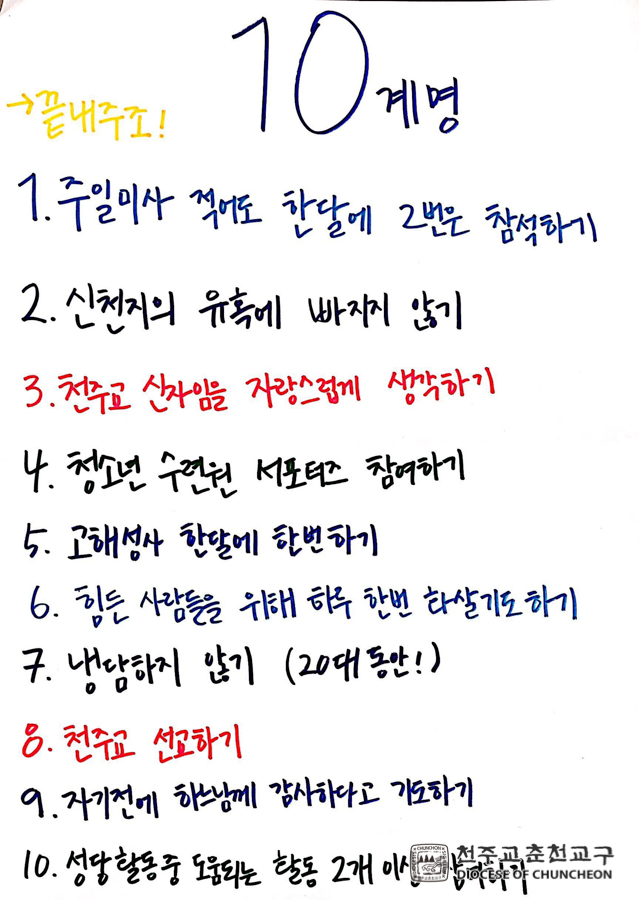 10계명
→끝내주조!
1. 주일미사 적어도 한달에 2번은 참석하기
2. 신천지의 유혹에 빠지지 않기
3. 천주교 신자임을 자랑스럽게 생각하기
4. 청소년 수련원 서포터즈 참여하기
5. 고해성사 한달에 한번하기
6. 힘든 사람들을 위해 하루 한번 화살기도하기
7. 냉담하지 않기 (20대 동안!)
8. 천주교 선교하기
9. 자기전에 하느님께 감사하다고 기도하기
10. 성당활동중 도움되는 활동 2개 이상
천주교춘천교구
DIOCESE OF CHUNCHEON